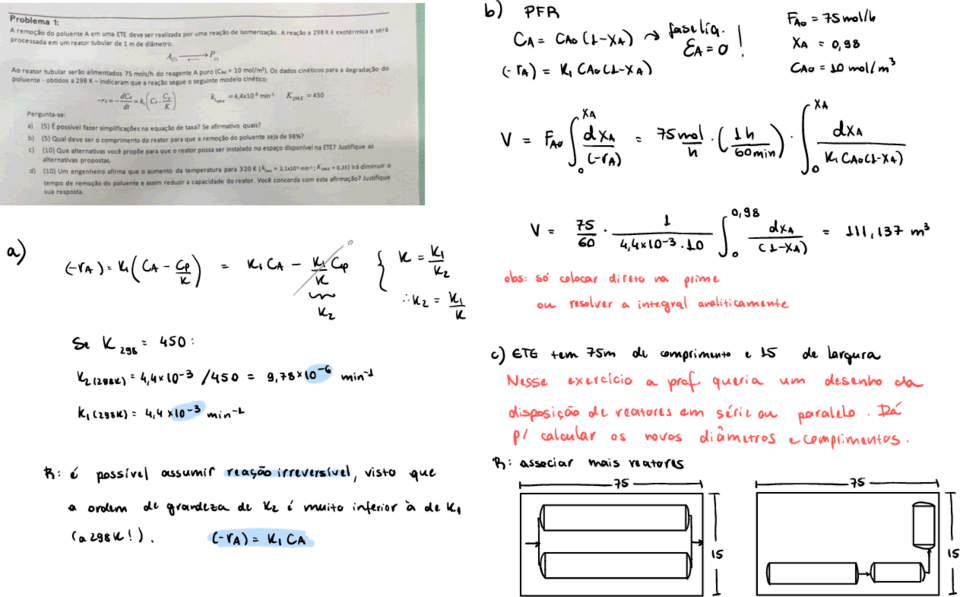 Problema 1:
A remoção do poluente A em uma ETE deve ser realizada por uma reação de isomerização. A reação a 298 K é exotérmica e será
processada em um reator tubular de 1 m de diâmetro.
A(l) ⇄ P(l)
Ao reator tubular serão alimentados 75 mols/h do reagente A puro (CA0 = 10 mol/m³). Os dados cinéticos para a degradação do
poluente - obtidos a 298 K – indicaram que a reação segue o seguinte modelo cinético:
-rA = -dCA/dt = k1(CA - CP/K) k1 298K = 4,4x10⁻³ min⁻¹ K298K = 450
Pergunta-se:
a) (5) É possível fazer simplificações na equação de taxa? Se afirmativo quais?
b) (5) Qual deve ser o comprimento do reator para que a remoção do poluente seja de 98%?
c) (10) Que alternativas você propõe para que o reator possa ser instalado no espaço disponível na ETE? Justifique as
alternativas propostas.
d) (10) Um engenheiro afirma que o aumento da temperatura para 320 K irá diminuir o
tempo de remoção do poluente e assim reduzir a capacidade do reator. Você concorda com esta afirmação? Justifique
sua resposta.
a)
(-rA) = K1(CA - CP/K) = K1CA - K1/K CP { K = K1/K2
0
K2
∴ K2 = K1/K
Se K298 = 450:
K2(298K) = 4,4x10⁻³/450 = 9,78x10⁻⁶ min⁻¹
K1(298K) = 4,4x10⁻³ min⁻¹
R: é possível assumir reação irreversível, visto que
a ordem de grandeza de K2 é muito inferior à de K1
(a 298K!). (-rA) = K1CA
b) PFR
CA = CA0(1-XA) → fase líq. εA = 0 !
(-rA) = K1CA0(1-XA)
FA0 = 75 mol/h
XA = 0,98
CA0 = 10 mol/m³
V = FA0 ∫0^XA dXA/(-rA) = 75 mol/h · (1h/60min) · ∫0^XA dXA/K1CA0(1-XA)
V = 75/60 · 1/4,4x10⁻³·10 ∫0^0,98 dXA/(1-XA) = 111,137 m³
obs: só colocar direto na prime
ou resolver a integral analiticamente
c) ETE tem 75m de comprimento e 15 de largura
Nesse exercício a prof. queria um desenho da
disposição de reatores em série ou paralelo. Dá
p/ calcular os novos diâmetros e comprimentos.
R: associar mais reatores
75
15
75
15